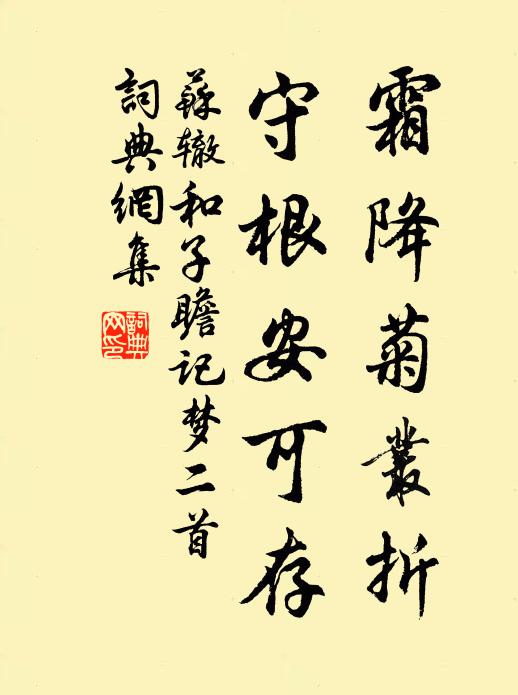 霜降菊叢折
守根安可存
蘇辙和子瞻记梦二首
詞典網集
詞典
网印